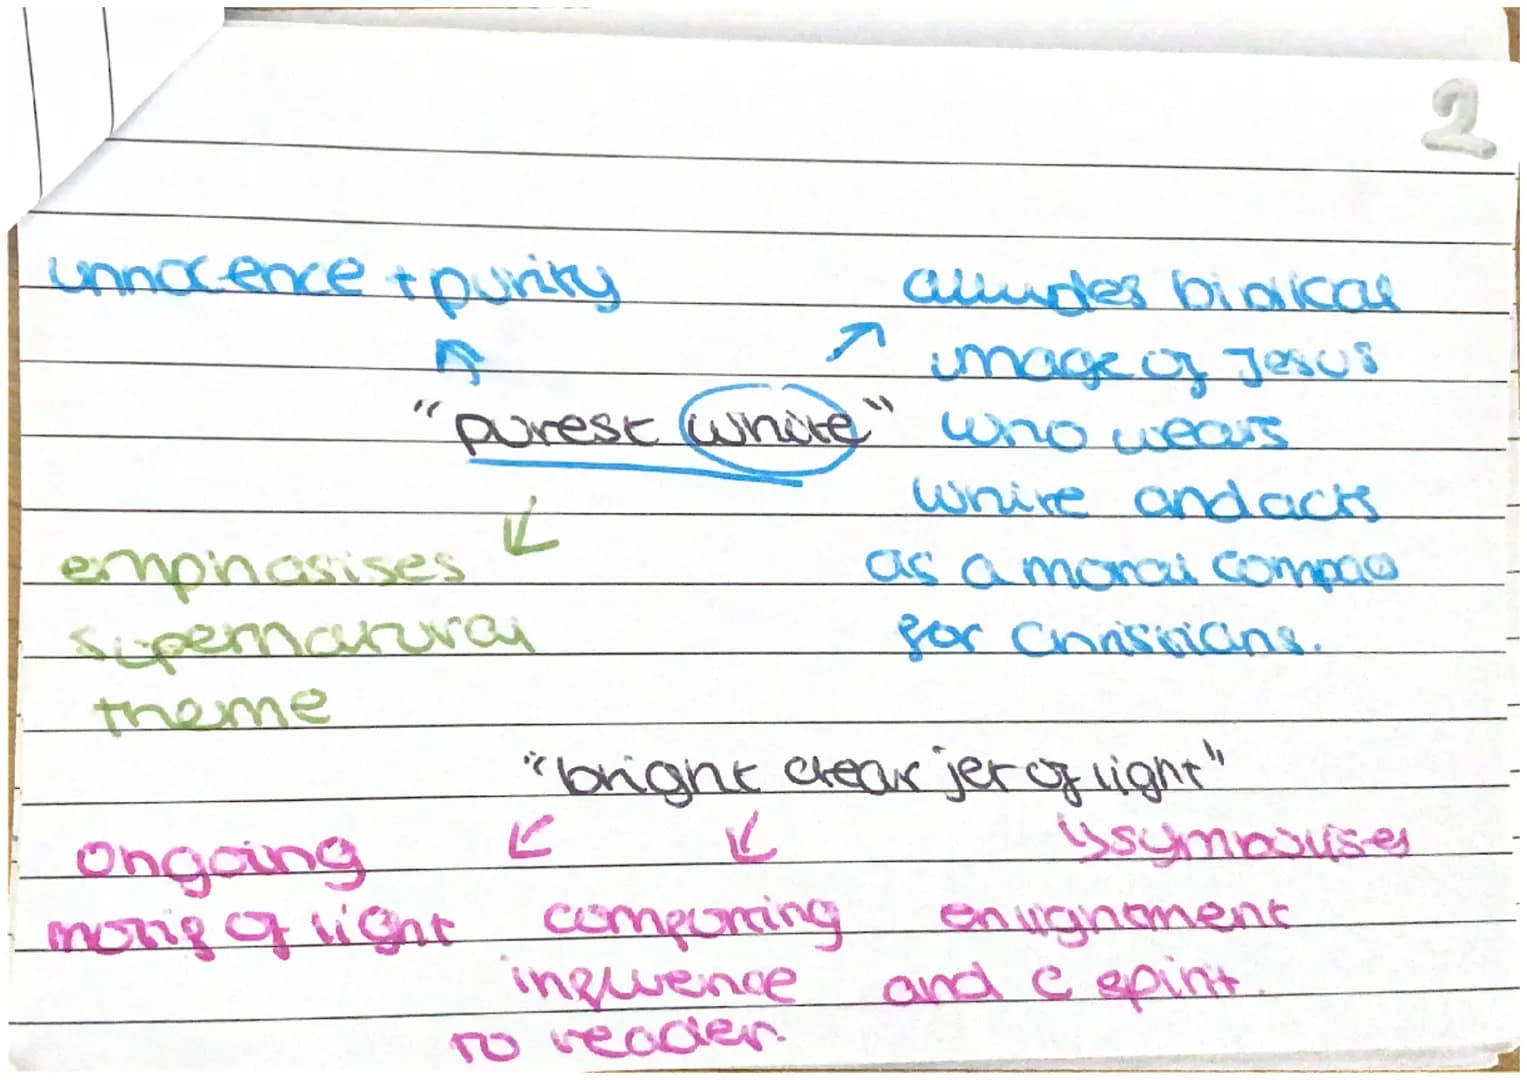 2
unnocence + purity
alludes biblical
image of Jesus
"purest white"
who wears
white and acts
as a moral compass
for Christians.
emphasises
supernatural
theme
"bright clear jet of light"
ongoing
motif of light
comforting
influence
to reader.
↳symbolises
enlightnment
and C spirit.